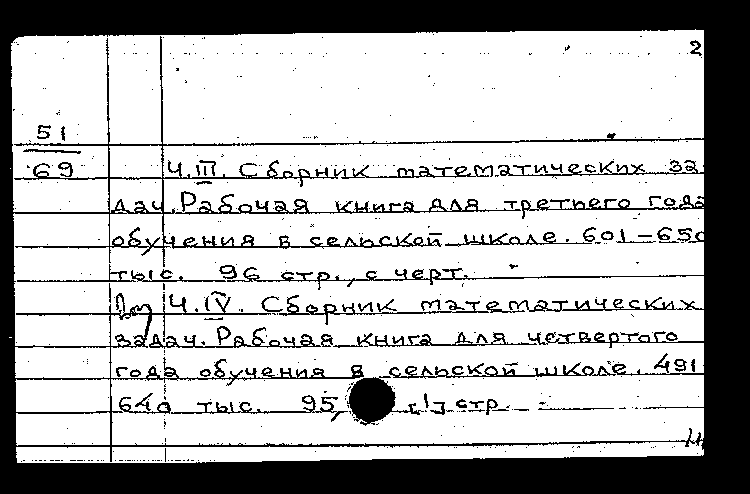 2
51
69
Ч.III. Сборник математических за-
дач. Рабочая книга для третьего года
обучения в сельской школе. 601-650
тыс. 96 стр., с черт.
Ч.IV. Сборник математических
задач. Рабочая книга для четвертого
года обучения в сельской школе. 491-
640 тыс. 95, [1] стр.